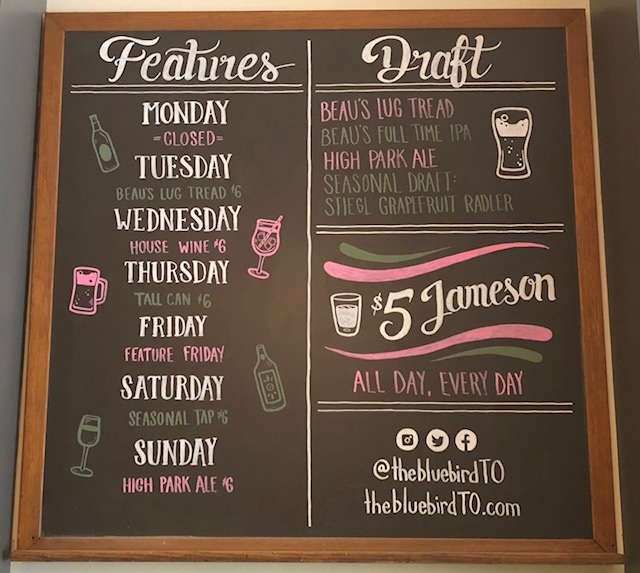 Features
MONDAY
=CLOSED=
TUESDAY
BEAU'S LUG TREAD $6
WEDNESDAY
HOUSE WINE $6
THURSDAY
TALL CAN $6
FRIDAY
FEATURE FRIDAY
SATURDAY
SEASONAL TAP $6
SUNDAY
HIGH PARK ALE $6
Draft
BEAU'S LUG TREAD
BEAU'S FULL TIME IPA
HIGH PARK ALE
SEASONAL DRAFT:
STIEGL GRAPEFRUIT RADLER
$5 Jameson
ALL DAY, EVERY DAY
@thebluebirdTO
thebluebirdTO.com